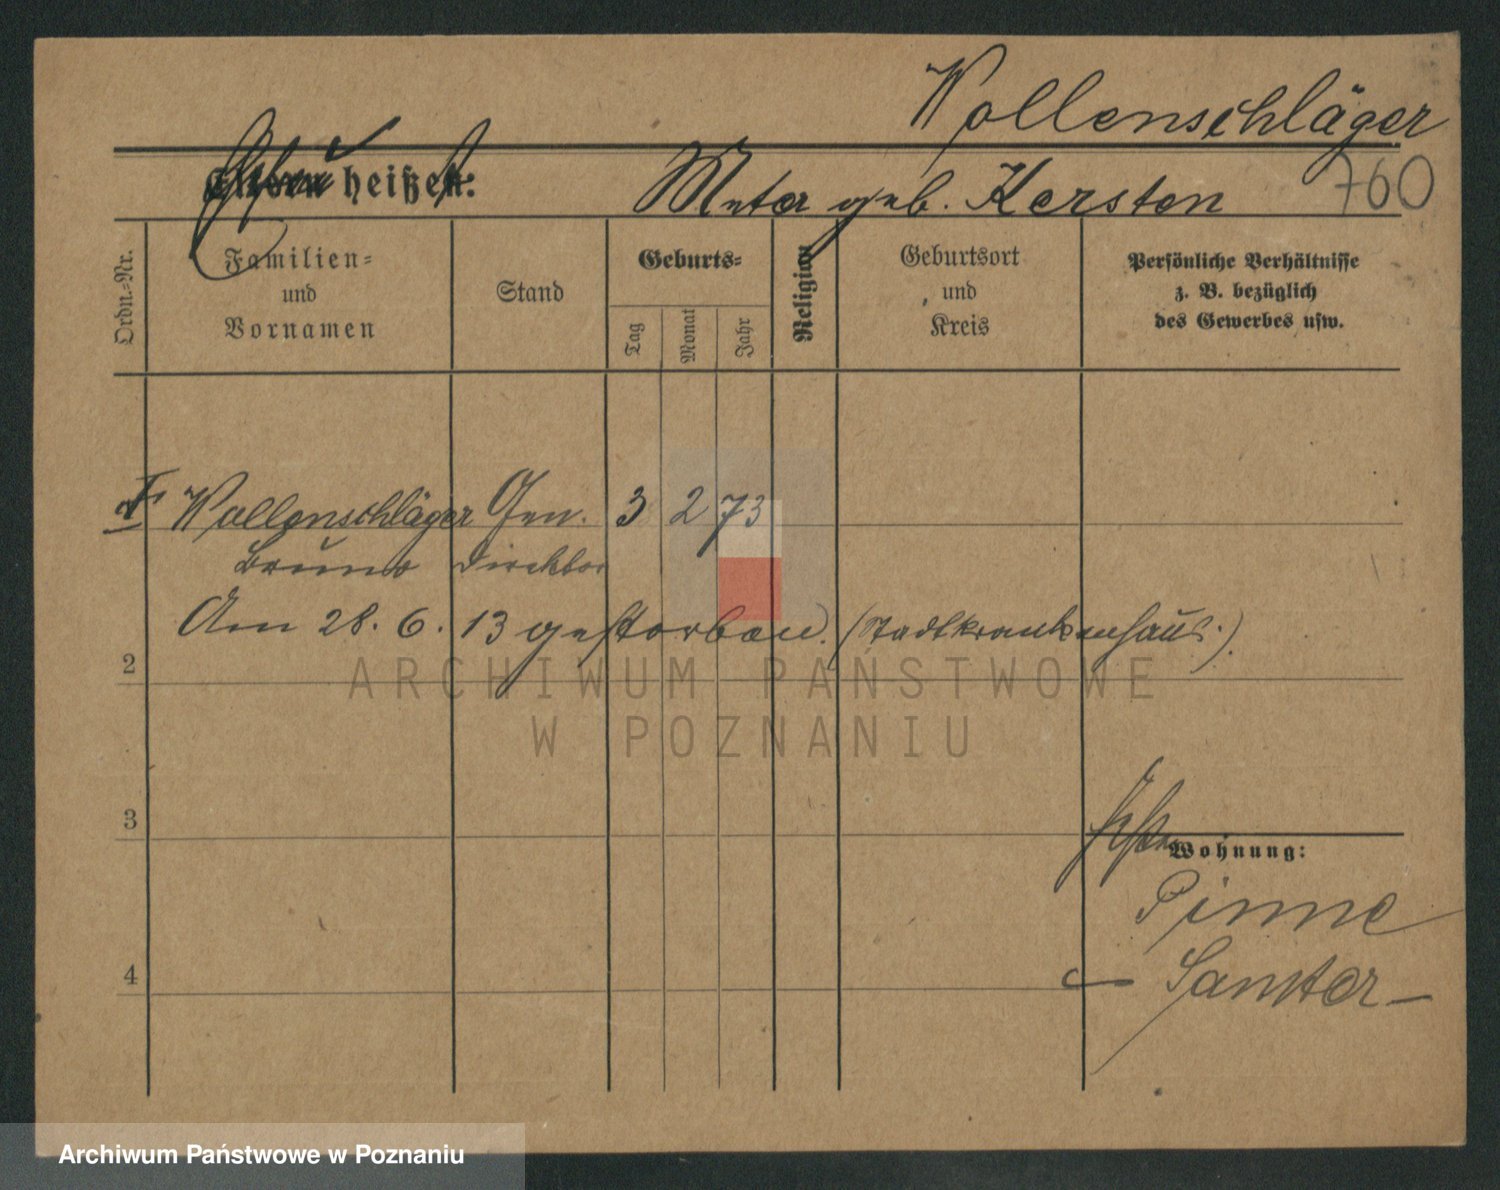 Wollenschläger
heißen: Meta geb. Kersten 760
Ordn.-Nr.
Familien-
und
Vornamen
Stand
Geburts-
Tag
Monat
Jahr
Religion
Geburtsort
und
Kreis
Persönliche Verhältnisse
z. B. bezüglich
des Gewerbes usw.
Wollenschläger Gen. 3 2 73
Bruno Direktor
Am 28. 6. 13 gestorben. (Stadtkrankenhaus.)
2
ARCHIWUM PAŃSTWOWE
W POZNANIU
3
Wohnung:
Pinne
4
Samter
Archiwum Państwowe w Poznaniu